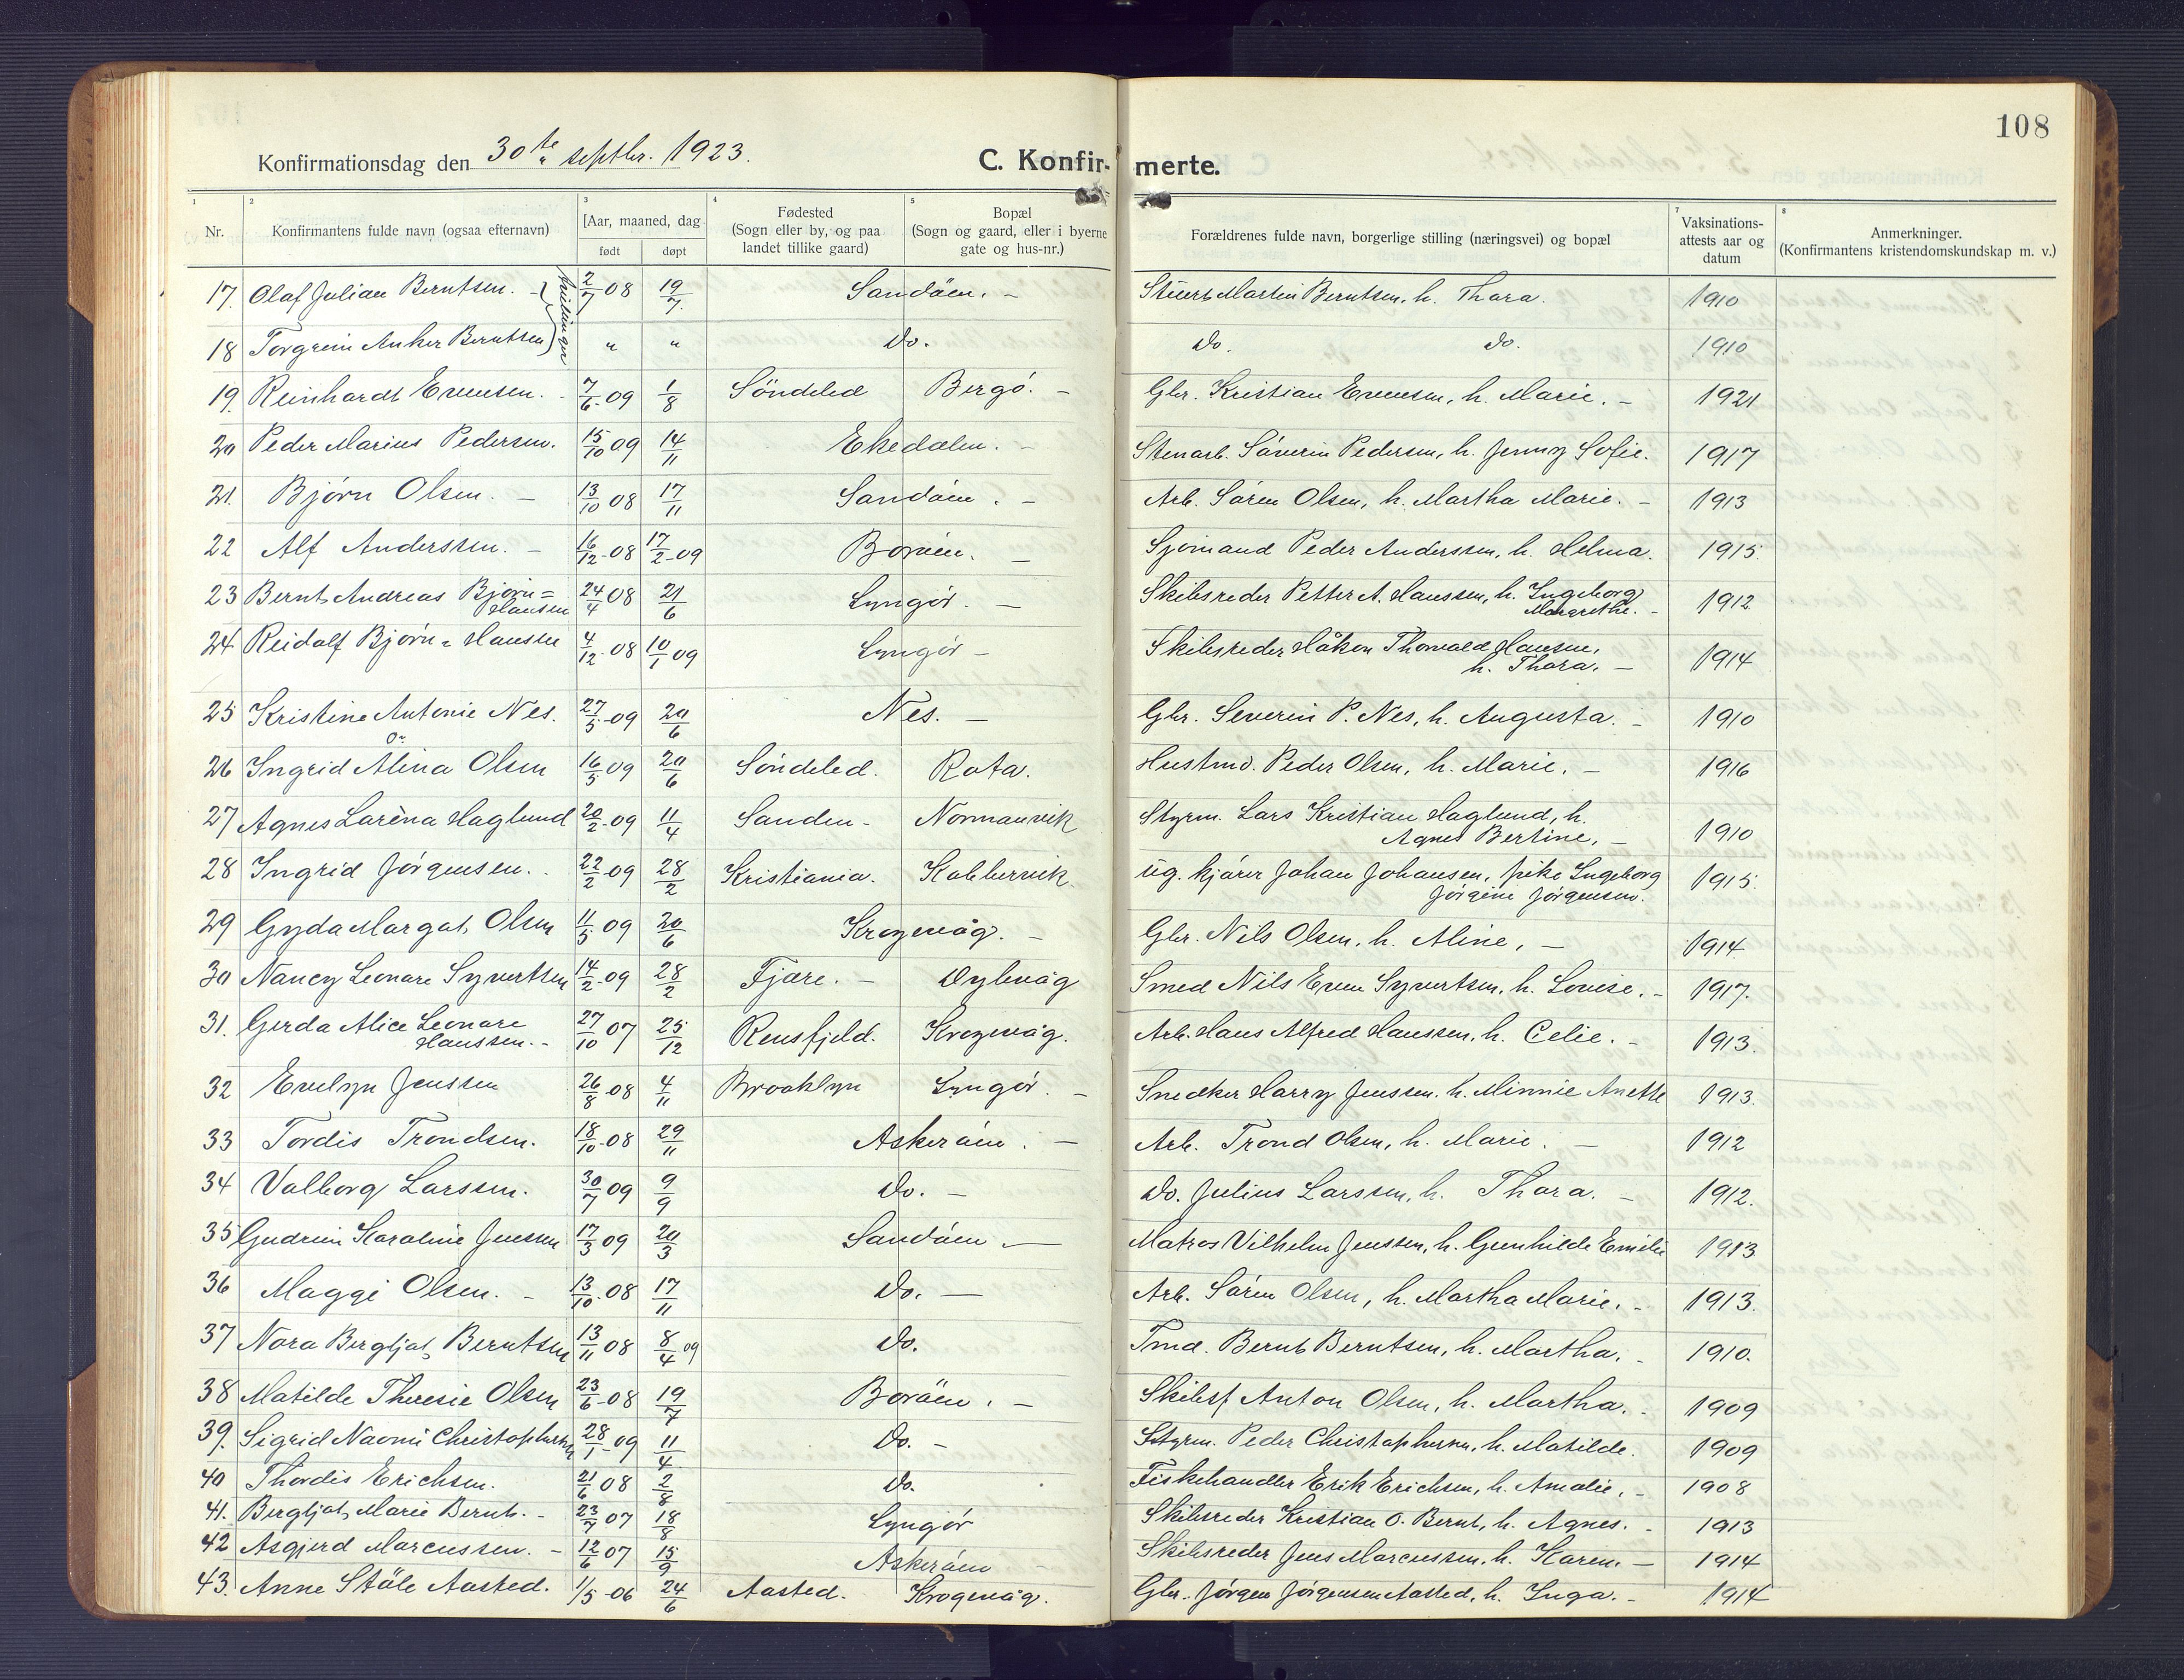 108
Konfirmationsdag den 30te septbr. 1923.
C. Konfir- merte.
1 2 3 4 5 7 8
Nr. Konfirmantens fulde navn (ogsaa efternavn) Aar, maaned, dag født døpt Fødested (Sogn eller by, og paa landet tillike gaard) Bopæl (Sogn og gaard, eller i byerne gate og hus-nr.) Forældrenes fulde navn, borgerlige stilling (næringsvei) og bopæl Vaksinations-attests aar og datum Anmerkninger. (Konfirmantens kristendomskundskap m. v.)
17. Olaf Julian Berntsen. - } tvillinger 2/7 08 19/7. Sandöen. - Stuert Martin Berntsen, h. Thara. 1910
18 Torgrim Anker Berntsen } " " Do. Do. Do. 1910
19. Reinhardt Evensen. - 7/6-09 1/8 Söndeled Bergö. - Gbr. Kristian Evensen, h. Marie. - 1921
20 Peder Marius Pedersen. 15/10 09 14/11 Ekedalen. - Stenarb. Såverin Pedersen, h. Jenny Sofie. 1917
21. Bjørn Olsen. - 13/10 08 17/11 Sandöen. - Arb. Sören Olsen, h. Martha Marie. - 1913
22 Alf Anderssen. - 16/12-08 17/2-09 Boröen. - Sjömand Peder Anderssen, h. Helma. 1915.
23 Bernt Andreas Bjørn=
Hansen 24/4 08 21/6 Lyngör. - Skibsreder Petter A. Hanssen, h. Ingeborg
Margrethe. - 1912
24 Reidolf Bjørn=Hansen 4/12-08 10/1 09 Lyngör - Skibsreder Håkon Thorvald Hansen,
h. Thora. - 1914
25 Kristine Antonie Nes. 27/5-09 20/6 Nes. - Gbr. Severin P. Nes, h. Augusta. - 1910
26 Ingrid Alina Olsen 16/5 09 20/6 Söndeled. Rota. Hustmd. Peder Olsen, h. Marie. - 1916
27 Agnes Laréna Haglund 20/2-09 11/4 Sanden - Normanvik Styrm. Lars Kristian Haglund, h.
Agnes Bertine, - 1910
28 Ingrid Jörgensen. - 22/2-09 28/2 Kristiania. Kabbervik ug. kjörer Johan Johansen, pike Ingeborg
Jörgine Jörgensen. 1915.
29 Gyda Margot Olsen 11/5 09 20/6 Krogevåg. - Gbr. Nils Olsen, h. Aline, - 1914
30 Nancy Leonare Syvertsen 14/2-09 28/2 Fjære. - Dybvåg Smed Nils Even Syvertsen, h. Lovise. - 1917.
31. Gerda Alice Leonare
Hanssen. - 27/10 07 25/12 Rensfjeld. Krogevåg. Arb. Hans Alfred Hanssen, h. Celie. - 1913.
32 Evelyn Jenssen 26/8-08 4/11 Brooklyn Lyngör. - Snedker Harry Jenssen. h. Minnie Anette 1913.
33 Tordis Trondsen. 18/10-08 29/11 Askeröen. - Arb. Trond Olsen, h. Marie. - 1912
34 Valborg Larssen. 30/7 09 9/9 Do. - Do. Julius Larssen, h. Thora. - 1912.
35 Gudrun Karoline Jenssen 17/3 09 20/3 Sandöen - Matros Vilhelm Jenssen, h. Gunhilde Emilie 1913
36 Maggi Olsen. - 13/10-08 17/11 Do. - Arb. Sören Olsen, h. Martha Marie. - 1913.
37 Nora Bergljot Berntsen 13/11 08 8/4 09 Do. Tmd. Bernt Berntsen, h. Martha. - 1910.
38 Matilde Theresie Olsen 23/6-08 19/7 Boröen. - Skibsf Anton Olsen, h. Martha. - 1909
39. Sigrid Naomi Christophersen 28/1-09 11/4 Do. - Styrm. Peder Christophersen, h. Matilde. 1909
40 Thordis Erichsen. 21/6 08 2/8 Do. Fiskehandler Erik Erichsen, h. Amalie. - 1908
41. Bergljot Marie Bernt. - 23/7 07 18/8 Lyngör Skibsreder Kristian O. Bernt, h. Agnes. - 1913
42 Asgjerd Marcussen. - 12/6 07 15/9 Askeröen Skibsreder Jens Marcussen. h. Karen. - 1914
43. Anne Ståle Aasted. 1/5-06 24/6 Aasted. Krogevåg. Gbr. Jörgen Jörgensen Aasted, h. Inga. - 1914